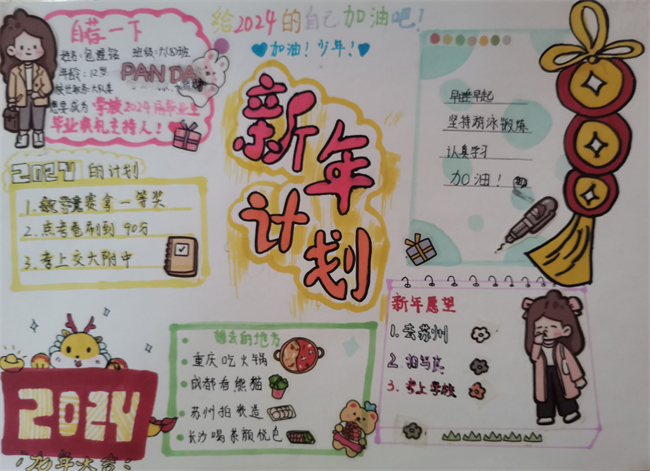 给2024的自己加油吧!
加油!少年!
自荐一下
班级:六四班
年龄:12岁
PANDA
想要成为学校2024届毕业生
毕业典礼主持人!
新年计划
早睡早起
坚持游泳锻炼
认真学习
加油!
2024的计划
赛拿一等奖
2.点考卷刷到90分
3.考上交大附中
新年愿望
1.去苏州
2.
3.考上学校
想去的地方
重庆吃火锅
成都看熊猫
苏州拍我造
长沙喝茶颜悦色
2024
龙年大吉